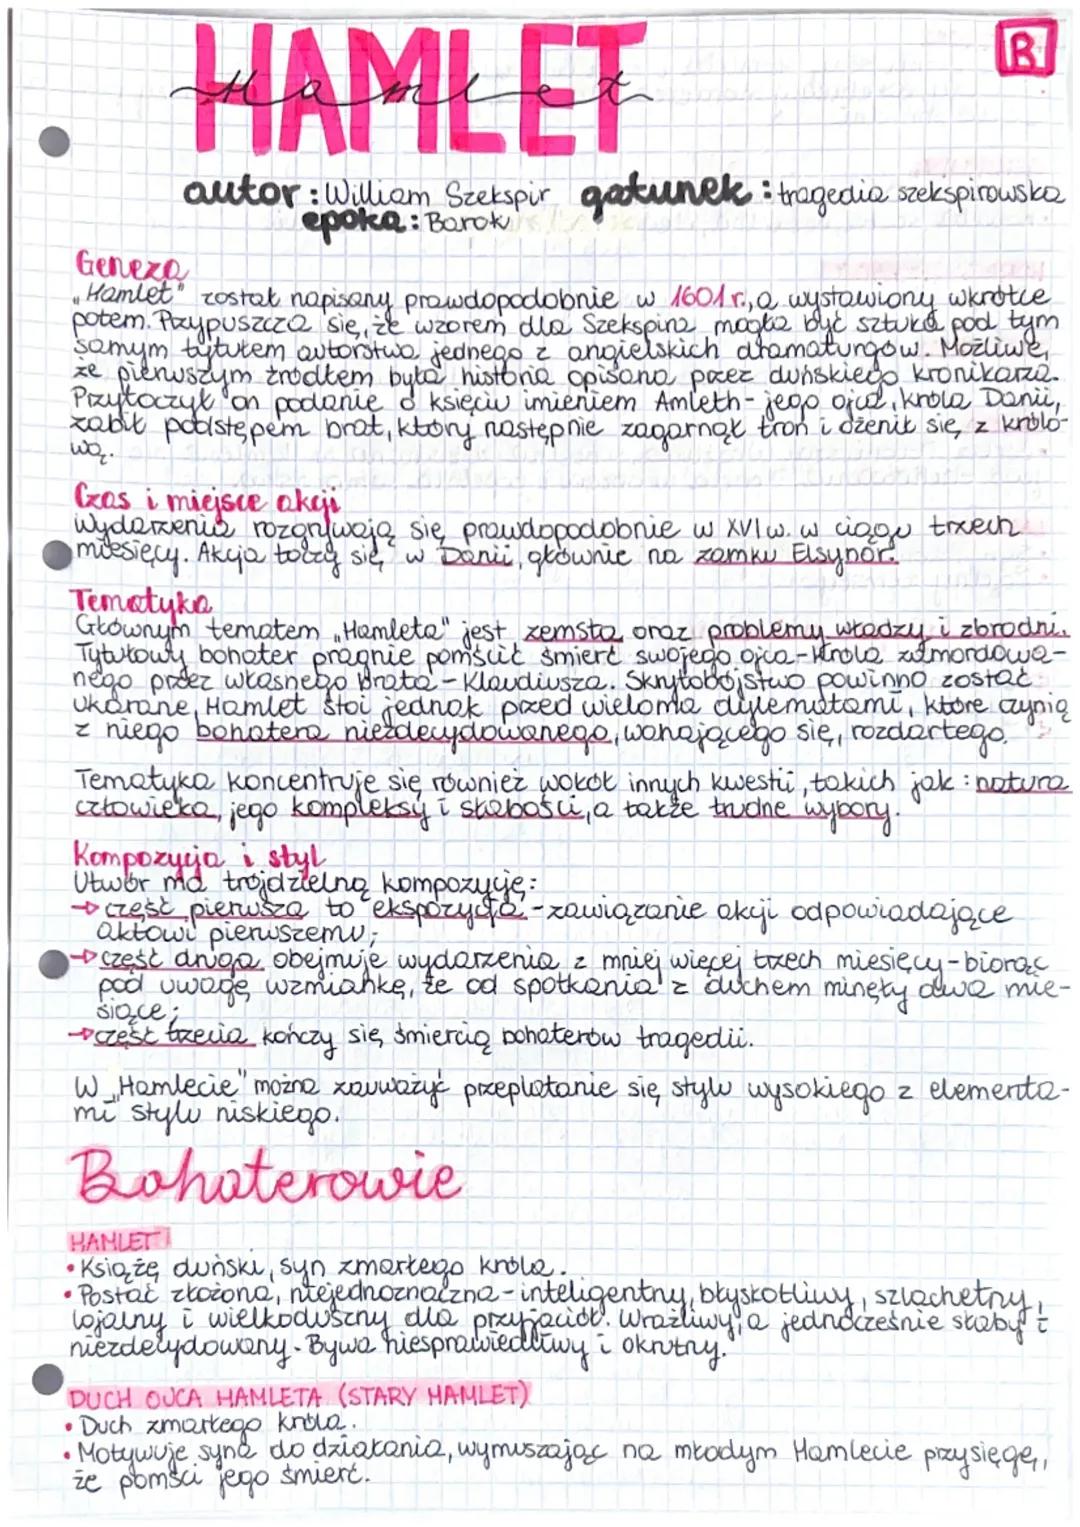 HAMLET
Hamlet
B
autor: William Szekspir gatunek: tragedia szekspirowska
epoka: Barok
Geneza
„Hamlet" został napisany prawdopodobnie w 1601 r., a wystawiony wkrótce
potem. Przypuszcza się, że wzorem dla Szekspira mogła być sztuka pod tym
samym tytułem autorstwa jednego z angielskich dramaturgów. Możliwe,
że pierwszym źródłem była historia opisana przez duńskiego kronikarza.
Przytoczył on podanie o księciu imieniem Amleth - jego ojca, króla Danii,
zabił podstępem brat, który następnie zagarnął tron i ożenił się z królo-
wą.
Czas i miejsce akcji
Wydarzenia rozgrywają się prawdopodobnie w XVI w. w ciągu trzech
miesięcy. Akcja toczy się w Danii, głównie na zamku Elsynor.
Tematyka
Głównym tematem „Hamleta" jest zemsta oraz problemy władzy i zbrodni.
Tytułowy bohater pragnie pomścić śmierć swojego ojca - króla zamordowa-
nego przez własnego brata - Klaudiusza. Skrytobójstwo powinno zostać
ukarane, Hamlet stoi jednak przed wieloma dylematami, które czynią
z niego bohatera niezdecydowanego, wahającego się, rozdartego.
Tematyka koncentruje się również wokół innych kwestii, takich jak: natura
człowieka, jego kompleksy i słabości, a także trudne wybory.
Kompozycja i styl
Utwór ma trójdzielną kompozycję:
→ część pierwsza to ekspozycja - zawiązanie akcji odpowiadające
aktowi pierwszemu;
→ część druga obejmuje wydarzenia z mniej więcej trzech miesięcy - biorąc
pod uwagę wzmiankę, że od spotkania z duchem minęły dwa mie-
siące;
→ część trzecia kończy się śmiercią bohaterów tragedii.
W „Hamlecie" można zauważyć przeplatanie się stylu wysokiego z elementa-
mi stylu niskiego.
Bohaterowie
HAMLET
• Książę duński, syn zmarłego króla.
• Postać złożona, niejednoznaczna - inteligentny, błyskotliwy, szlachetny,
lojalny i wielkoduszny dla przyjaciół. Wrażliwy, a jednocześnie słaby i
niezdecydowany. Bywa niesprawiedliwy i okrutny.
DUCH OJCA HAMLETA (STARY HAMLET)
• Duch zmarłego króla.
• Motywuje syna do działania, wymuszając na młodym Hamlecie przysięgę,
że pomści jego śmierć.